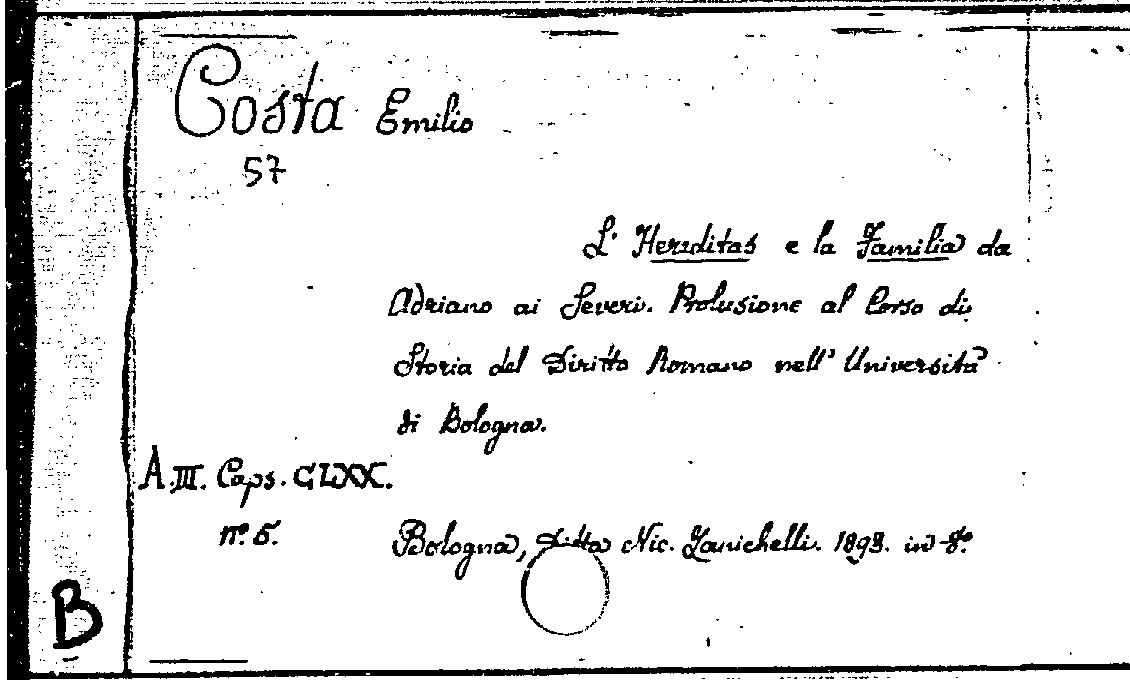 Costa Emilio
57
L' Hereditas e la Familia da
Adriano ai Severi. Prolusione al Corso di
Storia del Diritto Romano nell' Università
di Bologna.
A.III. Caps. CLXX.
n.° 5.
Bologna, Ditta Nic. Zanichelli. 1893. in 8.°
B